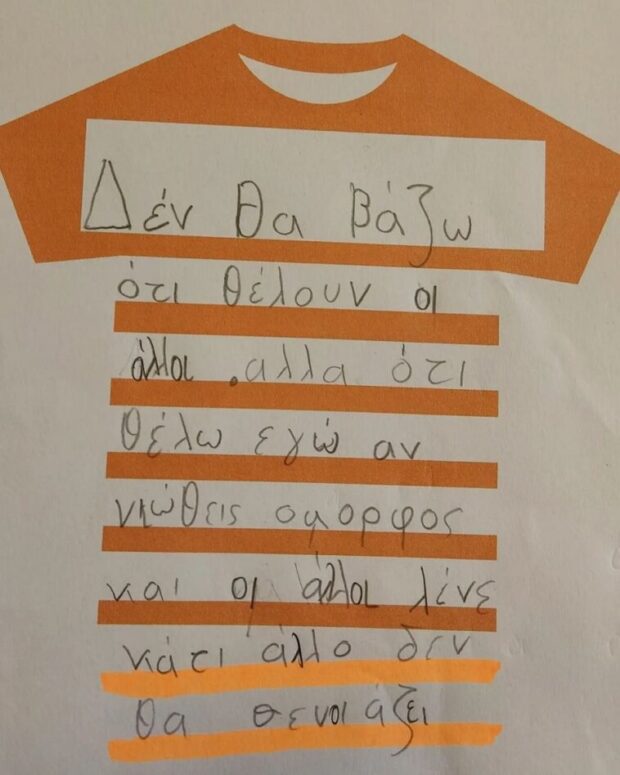 Δέν θα βάζω
ότι θέλουν οι
άλλοι αλλα ότι
θέλω εγώ αν
νιώθεις ομορφος
και οι άλλοι λένε
κάτι άλλο δεν
θα σενοιάζει